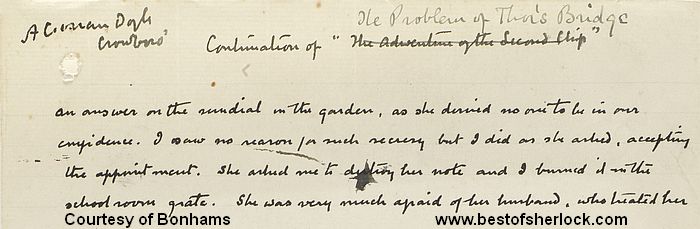 The Problem of Thor's Bridge
A Conan Doyle
Crowboro'
Continuation of "The Adventure of the Second Chip"
an answer on the sundial in the garden, as she desired no one to be in our
confidence. I saw no reason for such secresy but I did as she asked, accepting
the appointment. She asked me to destroy her note and I burned it in the
schoolroom grate. She was very much afraid of her husband, who treated her
Courtesy of Bonhams www.bestofsherlock.com